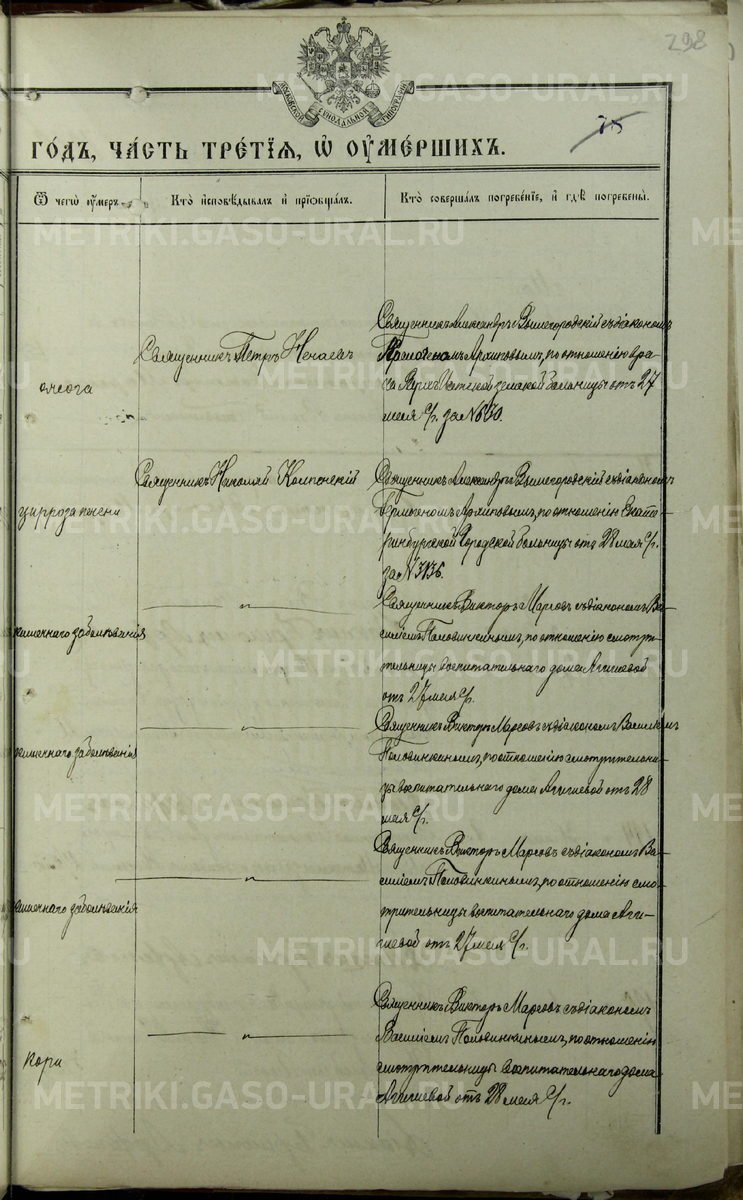 298
МОСКОВСКОЙ СѴНОДАЛЬНОЙ ТИПОГРАФІИ
75
ГО́ДЪ, ЧА́СТЬ ТРЕ́ТІЯ, Ѡ҆ ОУ҆МЕ́РШИХЪ.
Ѿ чегѡ̀ оу҆́меръ.
Кто̀ и҆сповѣ́дывалъ и҆ прїѡбща́лъ.
Кто̀ соверша́лъ погребе́нїе, и҆ гдѣ̀ погребены̀.
ожога
Священникъ Петръ Нечаевъ
Священникъ Александръ Вышегородскій съ діакономъ
Архиповымъ, по отношенію вра-
земской больницы отъ 27
мая с/г. за №
цирроза печени
Священникъ Николай
Священникъ Александръ Вышегородскій съ діакономъ
Гермогеномъ Архиповымъ, по отношенію Екате-
ринбургской Городской больницы отъ 28 мая с/г.
за № 3136.
кишечнаго заболѣванія
— " —
Священникъ Викторъ Марсовъ съ діакономъ Ва-
силіемъ Половинкинымъ, по отношенію смотри-
тельницы воспитательнаго дома Агишевой
отъ 27 мая с/г.
кишечнаго заболѣванія
— " —
Священникъ Викторъ Марсовъ съ діакономъ Василіемъ
Половинкинымъ, по отношенію смотрительни-
цы воспитательнаго дома Агишевой отъ 28
мая с/г.
кишечнаго заболѣванія
— " —
Священникъ Викторъ Марсовъ съ діакономъ Ва-
силіемъ Половинкинымъ, по отношенію смо-
трительницы воспитательнаго дома Аги-
шевой отъ 27 мая с/г.
кори
— " —
Священникъ Викторъ Марсовъ съ діакономъ
Василіемъ Половинкинымъ, по отношенію
смотрительницы воспитательнаго дома
Агишевой отъ 28 мая с/г.
METRIKI.GASO-URAL.RU